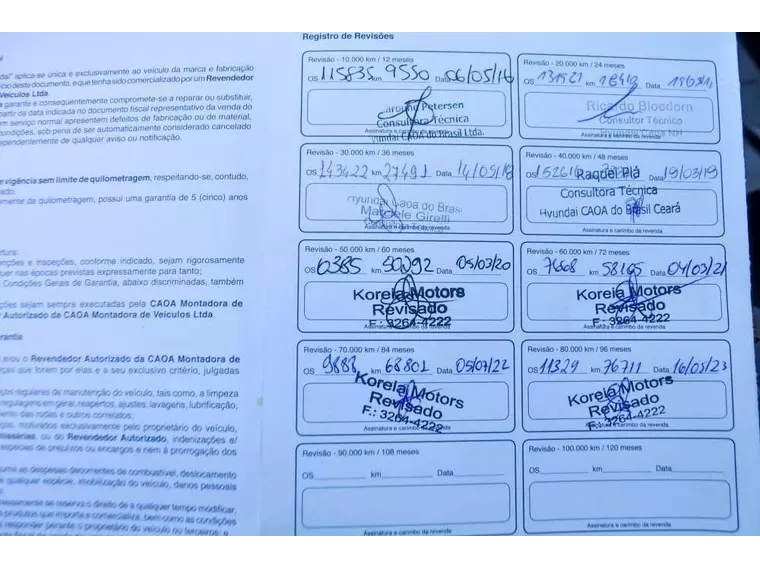 Registro de Revisões
dai" aplica-se única e exclusivamente ao veículo da marca e fabricação
deste documento, e que tenha sido comercializado por um Revendedor
Veículos Ltda.
garante e consequentemente compromete-se a reparar ou substituir,
partir da data indicada no documento fiscal representativo da venda do
em serviço normal apresentem defeitos de fabricação ou de material,
condições, sob pena de ser automaticamente considerado cancelado
independentemente de qualquer aviso ou notificação.
vigência sem limite de quilometragem, respeitando-se, contudo,
da quilometragem, possui uma garantia de 5 (cinco) anos
e inspeções, conforme indicado, sejam rigorosamente
nas épocas previstas expressamente para tanto;
Condições Gerais de Garantia, abaixo discriminadas, também
sejam sempre executadas pela CAOA Montadora de
Autorizado da CAOA Montadora de Veículos Ltda.
o Revendedor Autorizado da CAOA Montadora de
que forem por eles e a seu exclusivo critério, julgadas
regulares de manutenção do veículo, tais como, a limpeza
em geral, reapertos, ajustes, lavagens, lubrificação,
das rodas e outros correlatos;
motivados exclusivamente pelo proprietário do veículo,
ou do Revendedor Autorizado, indenizações e/
de prejuízos ou encargos e nem à prorrogação dos
as despesas decorrentes de combustível, deslocamento
qualquer espécie, imobilização do veículo, danos pessoais
se reserva o direito de a qualquer tempo modificar,
produtos que importa e comercializa, bem como as condições
responder perante o proprietário do veículo ou terceiros; e
Revisão - 10.000 km / 12 meses
OS 115835 km 9550 Data 06/05/16
Petersen
Consultora Técnica
Assinatura e carimbo da revenda
Hyundai CAOA do Brasil Ltda.
Revisão - 20.000 km / 24 meses
OS km Data
Ricardo Bloedorn
Consultor Técnico
Assinatura e carimbo da revenda
Revisão - 30.000 km / 36 meses
OS 143422 km 27491 Data 14/05/18
Hyundai Caoa do Brasil
Girelli
Revisão - 40.000 km / 48 meses
OS Data 19/03/19
Raquel Plá
Consultora Técnica
Hyundai CAOA do Brasil Ceará
Assinatura e carimbo da revenda
Revisão - 50.000 km / 60 meses
OS 6385 km 50292 Data 05/03/20
Koreia Motors
Revisado
F.: 3264-4222
Revisão - 60.000 km / 72 meses
OS km 58165 Data 04/03/21
Koreia Motors
Revisado
F.: 3264-4222
Revisão - 70.000 km / 84 meses
OS 9888 km 68801 Data 05/07/22
Koreia Motors
Revisado
F.: 3264-4222
Assinatura e carimbo da revenda
Revisão - 80.000 km / 96 meses
OS 11329 km 76711 Data 16/05/23
Koreia Motors
Revisado
F.: 3264-4222
Assinatura e carimbo da revenda
Revisão - 90.000 km / 108 meses
OS km Data
Assinatura e carimbo da revenda
Revisão - 100.000 km / 120 meses
OS km Data
Assinatura e carimbo da revenda